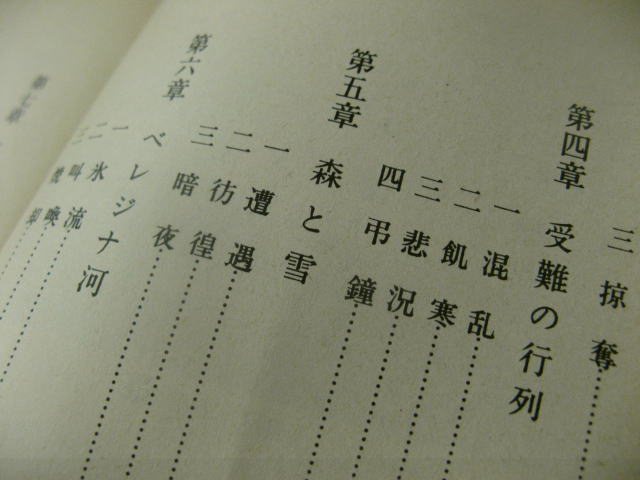 三 掠奪
第四章 受難の行列
一 混乱
二 飢寒
三 悲況
四 弔鐘
第五章 森と雪
一 遭遇
二 彷徨
三 暗夜
第六章 ベレジナ河
一 氷流
二 叫喚
三
第七章